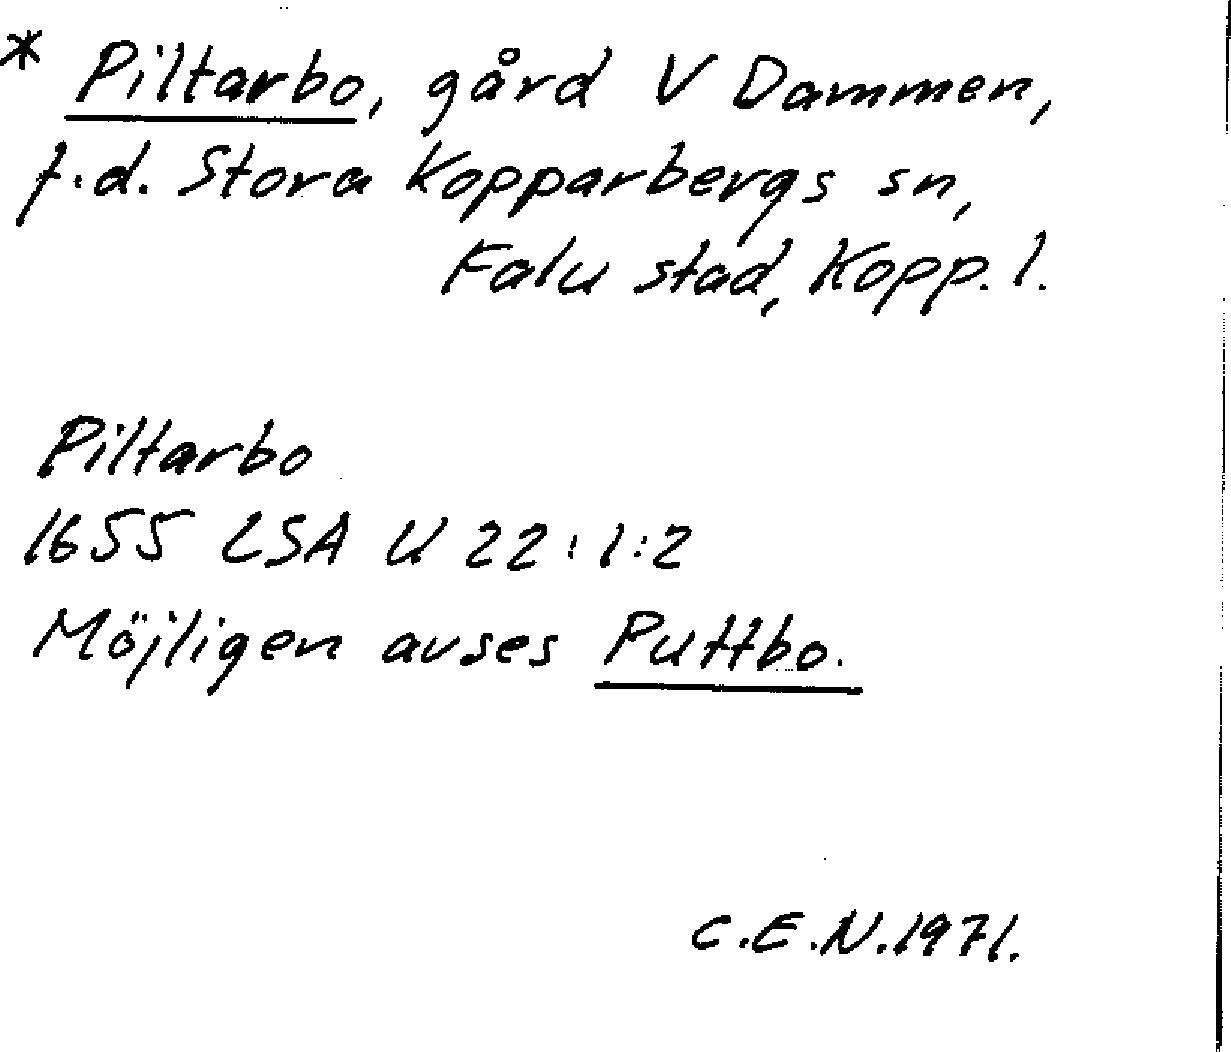 * Piltarbo, gård V Dammen,
f.d. Stora Kopparbergs sn,
Falu stad, Kopp. l.
Piltarbo
1655 LSA U 22:1:2
Möjligen avses Puttbo.
C.E.N. 1971.